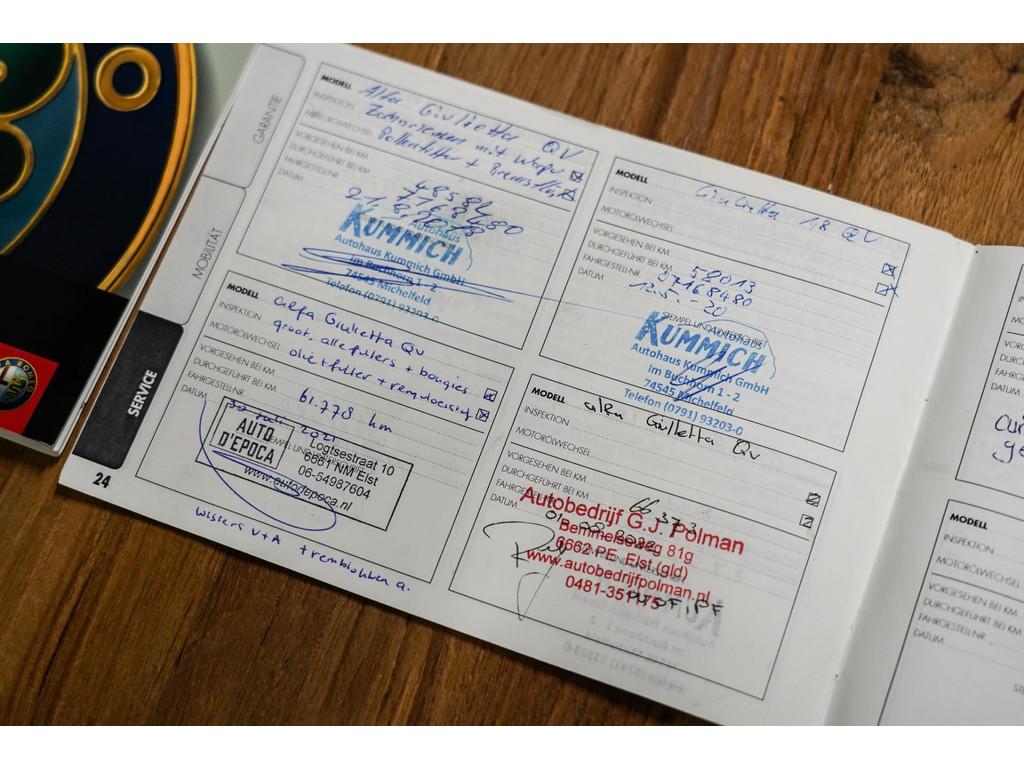 GARANTIE
MOBILITÄT
SERVICE
24
MODELL Alfa Giulietta QV
INSPEKTION
MOTORÖLWECHSEL
VORGESEHEN BEI KM
DURCHGEFÜHRT BEI KM 48584
FAHRGESTELL-NR.
DATUM
Autohaus
KUMMICH
Autohaus Kummich GmbH
Im Buchhorn 1 - 2
74545 Michelfeld
Telefon (0791) 93203-0
MODELL Giulietta 1.8 QV
INSPEKTION
MOTORÖLWECHSEL
VORGESEHEN BEI KM
DURCHGEFÜHRT BEI KM 58013
FAHRGESTELL-NR. 07168480
DATUM 12.5.-20
STEMPEL UND UNTERSCHRIFT
Autohaus
KUMMICH
Autohaus Kummich GmbH
Im Buchhorn 1 - 2
74545 Michelfeld
Telefon (0791) 93203-0
MODELL alfa Giulietta Qv
INSPEKTION groot, alle filters + bougies
MOTORÖLWECHSEL
VORGESEHEN BEI KM
DURCHGEFÜHRT BEI KM 61.778 km
FAHRGESTELL-NR.
DATUM 30 juli 2021
AUTO
D'EPOCA
Logtsestraat 10
6661 NM Elst
06-54987604
www.autodepoca.nl
wissers v+A + remblokken a.
MODELL alfa Giulietta Qv
INSPEKTION
MOTORÖLWECHSEL
VORGESEHEN BEI KM
DURCHGEFÜHRT BEI KM 66.373
FAHRGESTELL-NR.
DATUM
Autobedrijf G.J. Polman
Bemmelseweg 81g
6662 PE Elst (gld)
www.autobedrijfpolman.nl
0481-351175
MODELL
INSPEKTION
MOTORÖLWECHSEL
VORGESEHEN BEI KM
DURCHGEFÜHRT BEI KM
FAHRGESTELL-NR.
DATUM